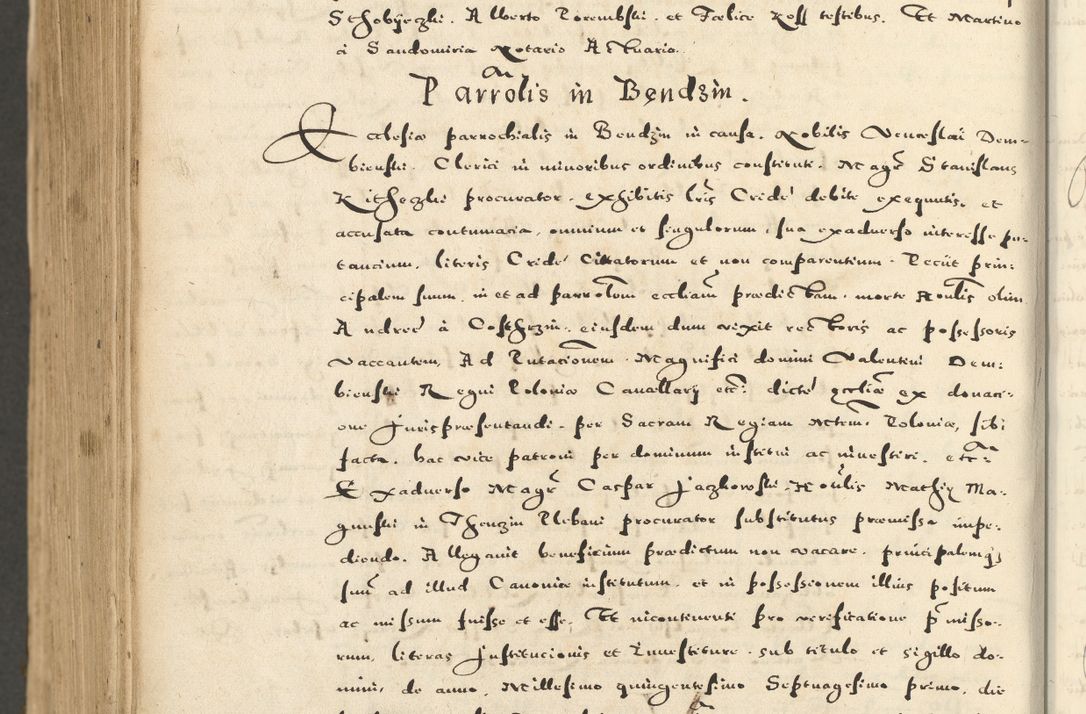 Sthobyeczki. Alberto Porembski. et Foelice Ross testibus. Et Martino
a Sandomiria Notario Actuario.
Parrolis in Bendzin.
Ecclesiæ parrochialis in Bendzin in causa. Nobilis Venceslai Dem-
bienski. Clerici in minoribus ordinibus constituti. Magr Stanislaus
procurator. exhibitis lris Cridæ debite exequutis, et
accusata contumacia, omnium et singulorum, sua exadverso interesse pu-
tancium, literis Cridæ Cittatorum et non comparentium. Peciit prin-
cipalem suum, in et ad parrolem eccliam prædictam. morte Honlis olim
Andreæ à Costhczin, eiusdem dum vixit rectoris ac possessoris
vaccantem, Ad Putacionem. Magnifici domini Valentini Dem-
bienski Regni Poloniæ Cancellarij etc: dictæ eccliæ ex donaci-
one Juris præsentandi. per Sacram Regiam Mtem. Poloniæ, sibi
facta. hac vice patroni per dominum institui ac investiri. etc:
Exadverso Magr Caspar Jaczkowski Honlis Mathiæ Ma-
gnuski in Thenczin Plebani procurator substitutus præmissa impe-
diendo. Allegavit beneficium prædictum non vacare. principalemq;
suum ad illud Canonice institutum. et in possessionem illius positum
ac missum fuisse et esse. Et incontinenti pro verificatione præmisso-
rum, literas Institucionis et Investituræ. sub titulo et sigillo do-
mini, de anno. Millesimo quingentesimo Septuagesimo primo, die